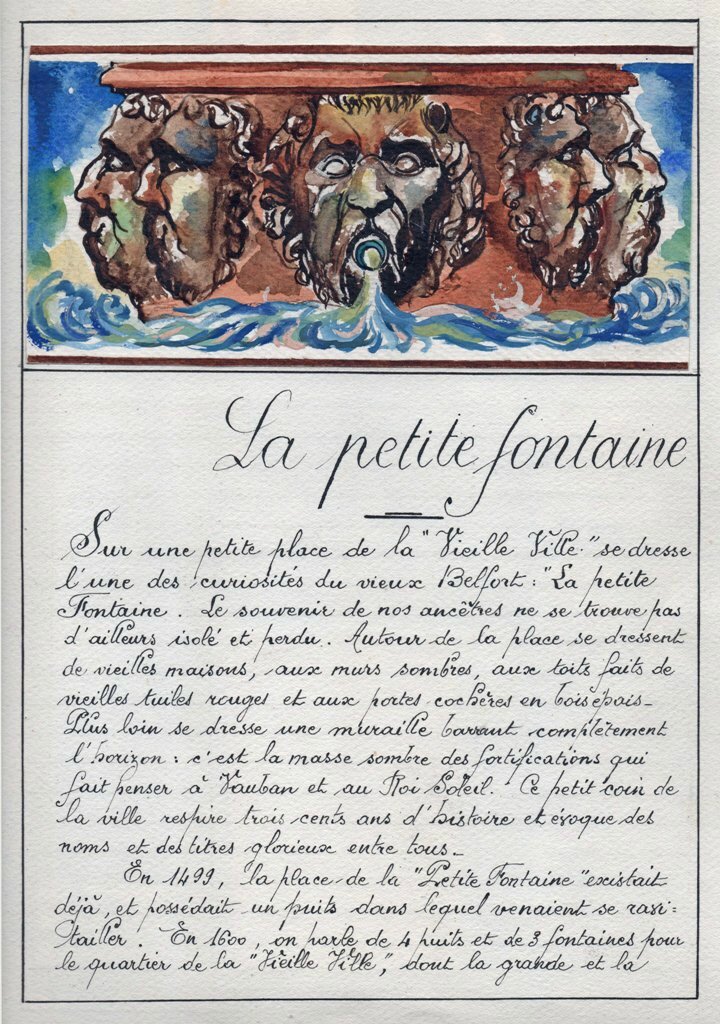 La petite fontaine
Sur une petite place de la "Vieille Ville" se dresse
l'une des curiosités du vieux Belfort : "La petite
Fontaine. Le souvenir de nos ancêtres ne se trouve pas
d'ailleurs isolé et perdu. Autour de la place se dressent
de vieilles maisons, aux murs sombres, aux toits faits de
vieilles tuiles rouges et aux portes cochères en bois épais_
Plus loin se dresse une muraille barrant complètement
l'horizon : c'est la masse sombre des fortifications qui
fait penser à Vauban et au Roi Soleil. Ce petit coin de
la ville respire trois cents ans d'histoire et évoque des
noms et des titres glorieux entre tous_
En 1499, la place de la "Petite Fontaine" existait
déjà, et possédait un puits dans lequel venaient se ravi=
tailler. En 1600, on parle de 4 puits et de 3 fontaines pour
le quartier de la "Vieille Ville", dont la grande et la